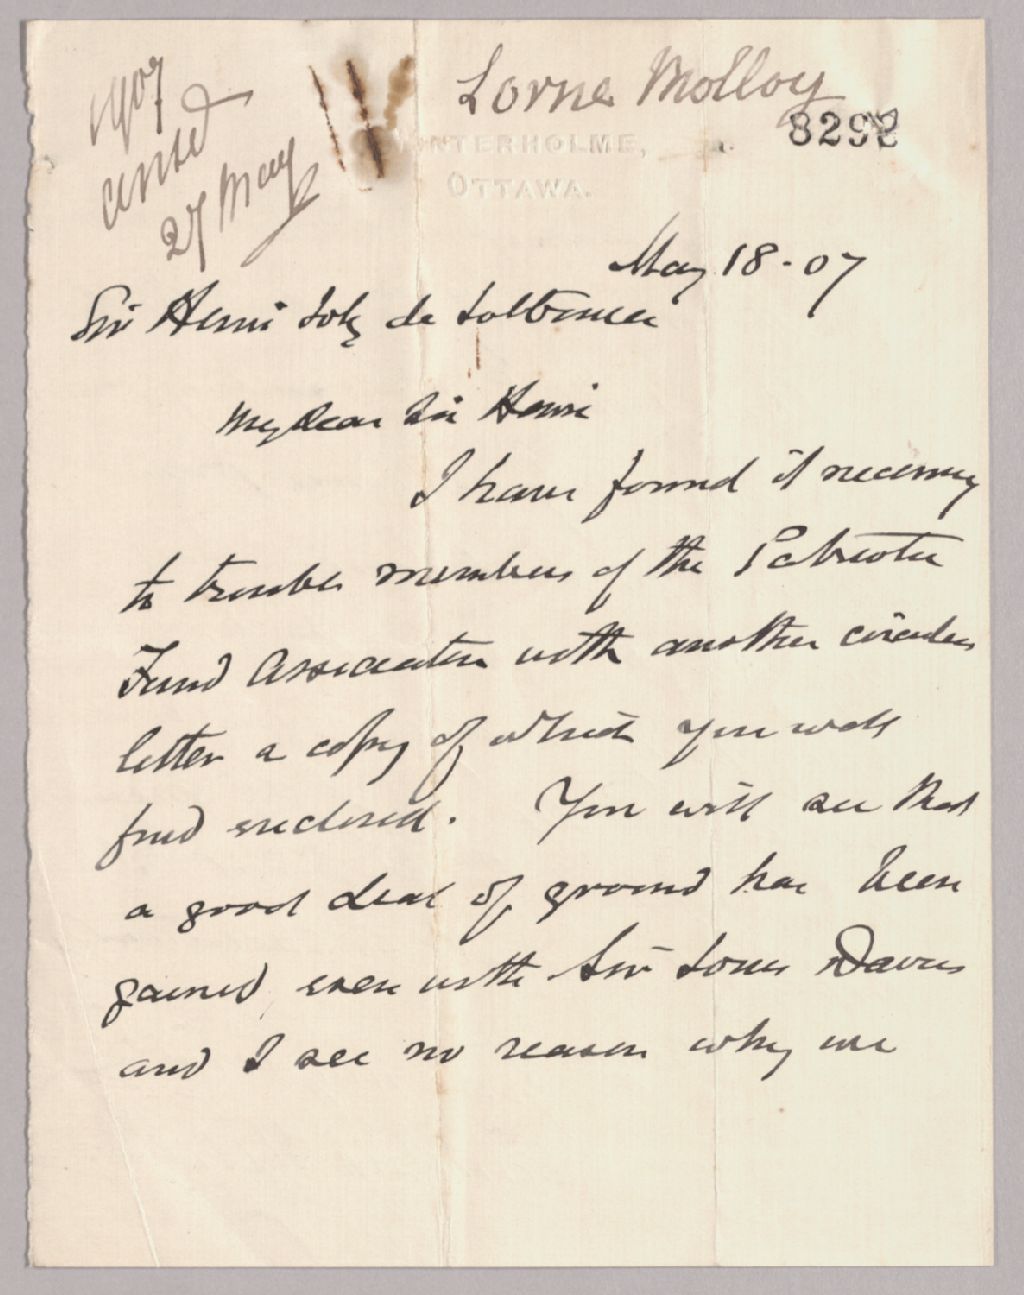 1907
answd
27 May
Lorne Molloy
8292
WINTERHOLME,
OTTAWA.
May 18-07
Sir Henri Joly de Lotbiniere
My dear Sir Henri
I have found it necessary
to trouble members of the Patriotic
Fund Association with another circular
letter a copy of which you will
find enclosed. You will see that
a good deal of ground has been
gained even with Sir Louis Davies
and I see no reason why we